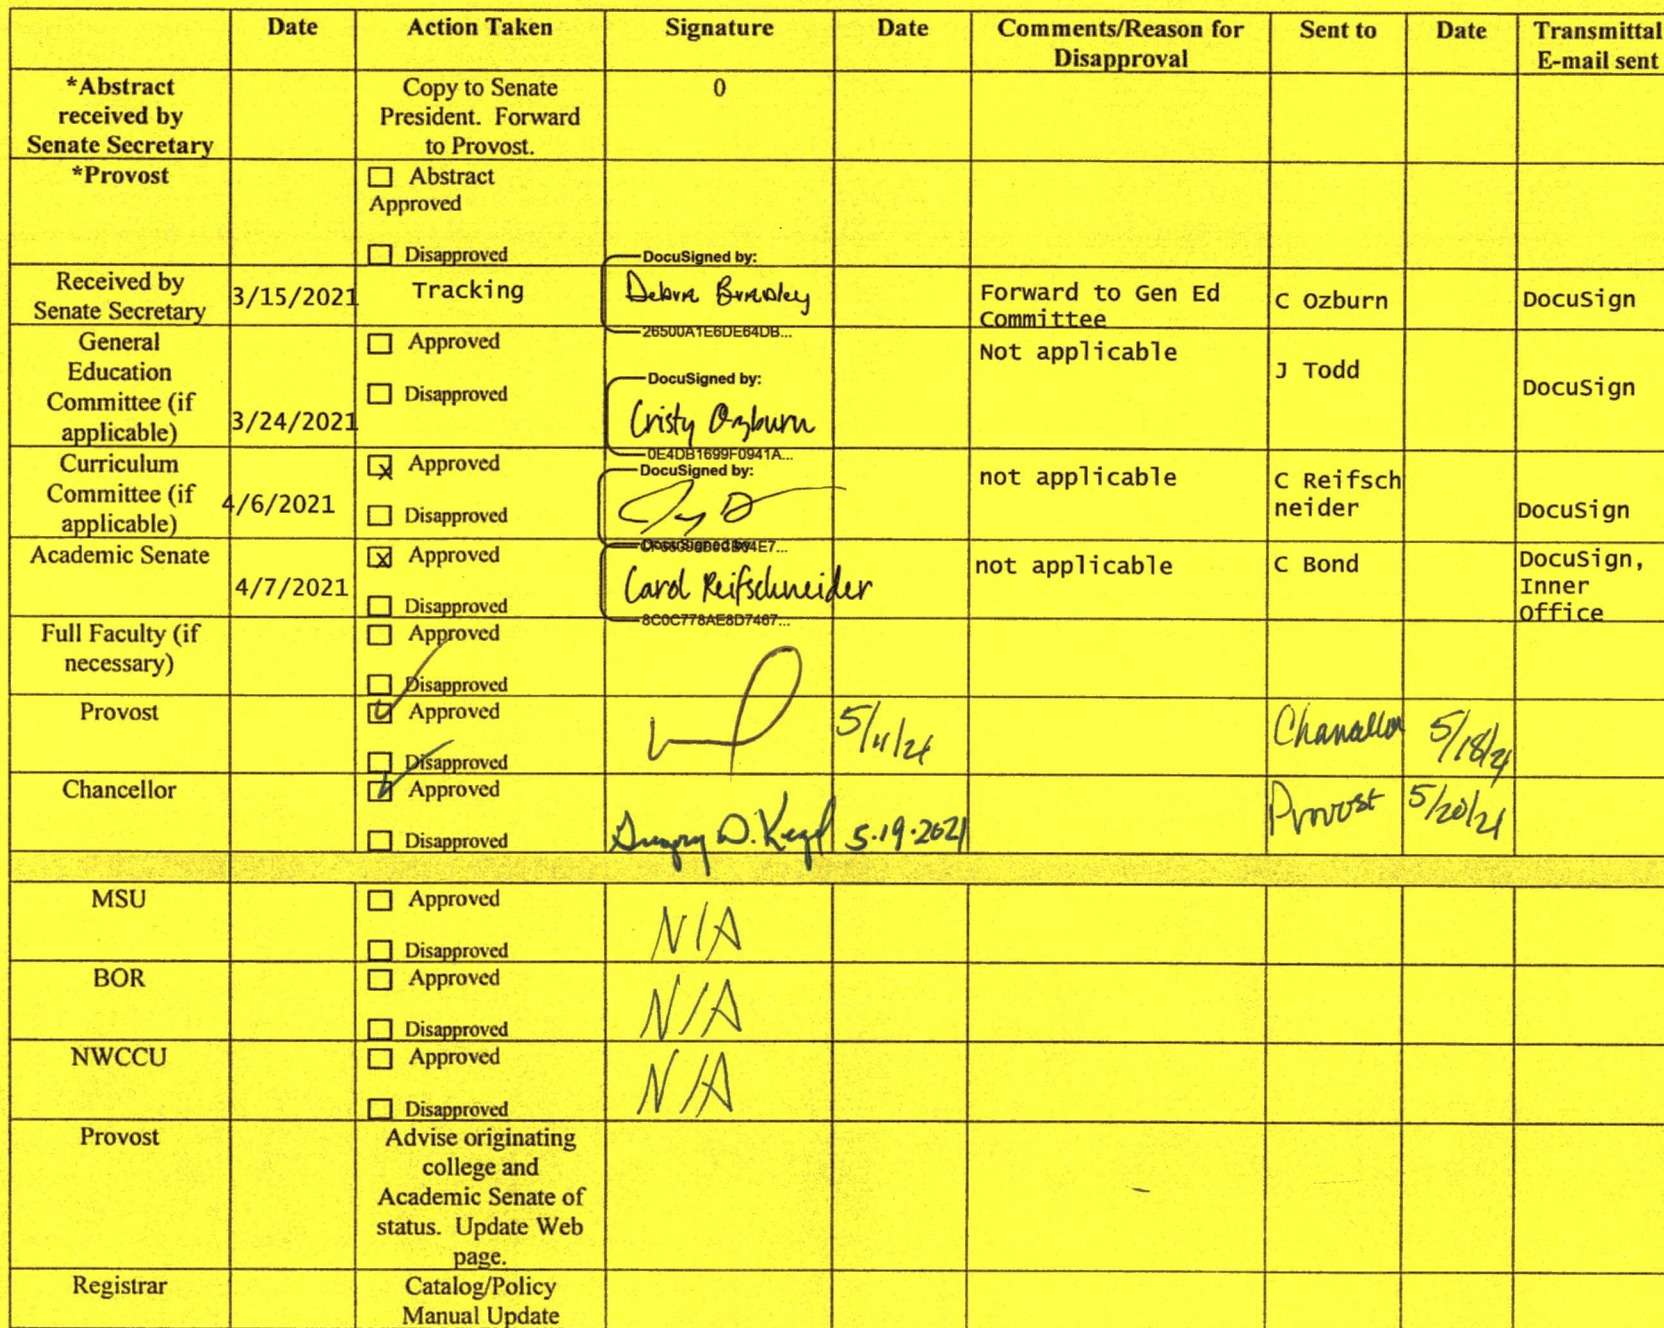 Date Action Taken Signature Date Comments/Reason for Disapproval Sent to Date Transmittal E-mail sent
*Abstract received by Senate Secretary
Copy to Senate President. Forward to Provost.
0
*Provost
Abstract Approved
Disapproved
Received by Senate Secretary
3/15/2021
Tracking
DocuSigned by:
Debra Bradley
26500A1E6DE64DB...
Forward to Gen Ed Committee
C Ozburn
DocuSign
General Education Committee (if applicable)
3/24/2021
Approved
Disapproved
DocuSigned by:
Cristy Ozburn
0E4DB1699F0941A...
Not applicable
J Todd
DocuSign
Curriculum Committee (if applicable)
4/6/2021
x Approved
Disapproved
DocuSigned by:
not applicable
C Reifsch
neider
DocuSign
Academic Senate
4/7/2021
x Approved
Disapproved
Carol Reifschneider
8C0C778AE8D7467...
not applicable
C Bond
DocuSign,
Inner
Office
Full Faculty (if necessary)
Approved
Disapproved
Provost
Approved
Disapproved
5/11/21
Chancellor
5/18/21
Chancellor
Approved
Disapproved
5.19.2021
Provost
5/20/21
MSU
Approved
Disapproved
N/A
BOR
Approved
Disapproved
N/A
NWCCU
Approved
Disapproved
N/A
Provost
Advise originating college and Academic Senate of status. Update Web page.
Registrar
Catalog/Policy Manual Update